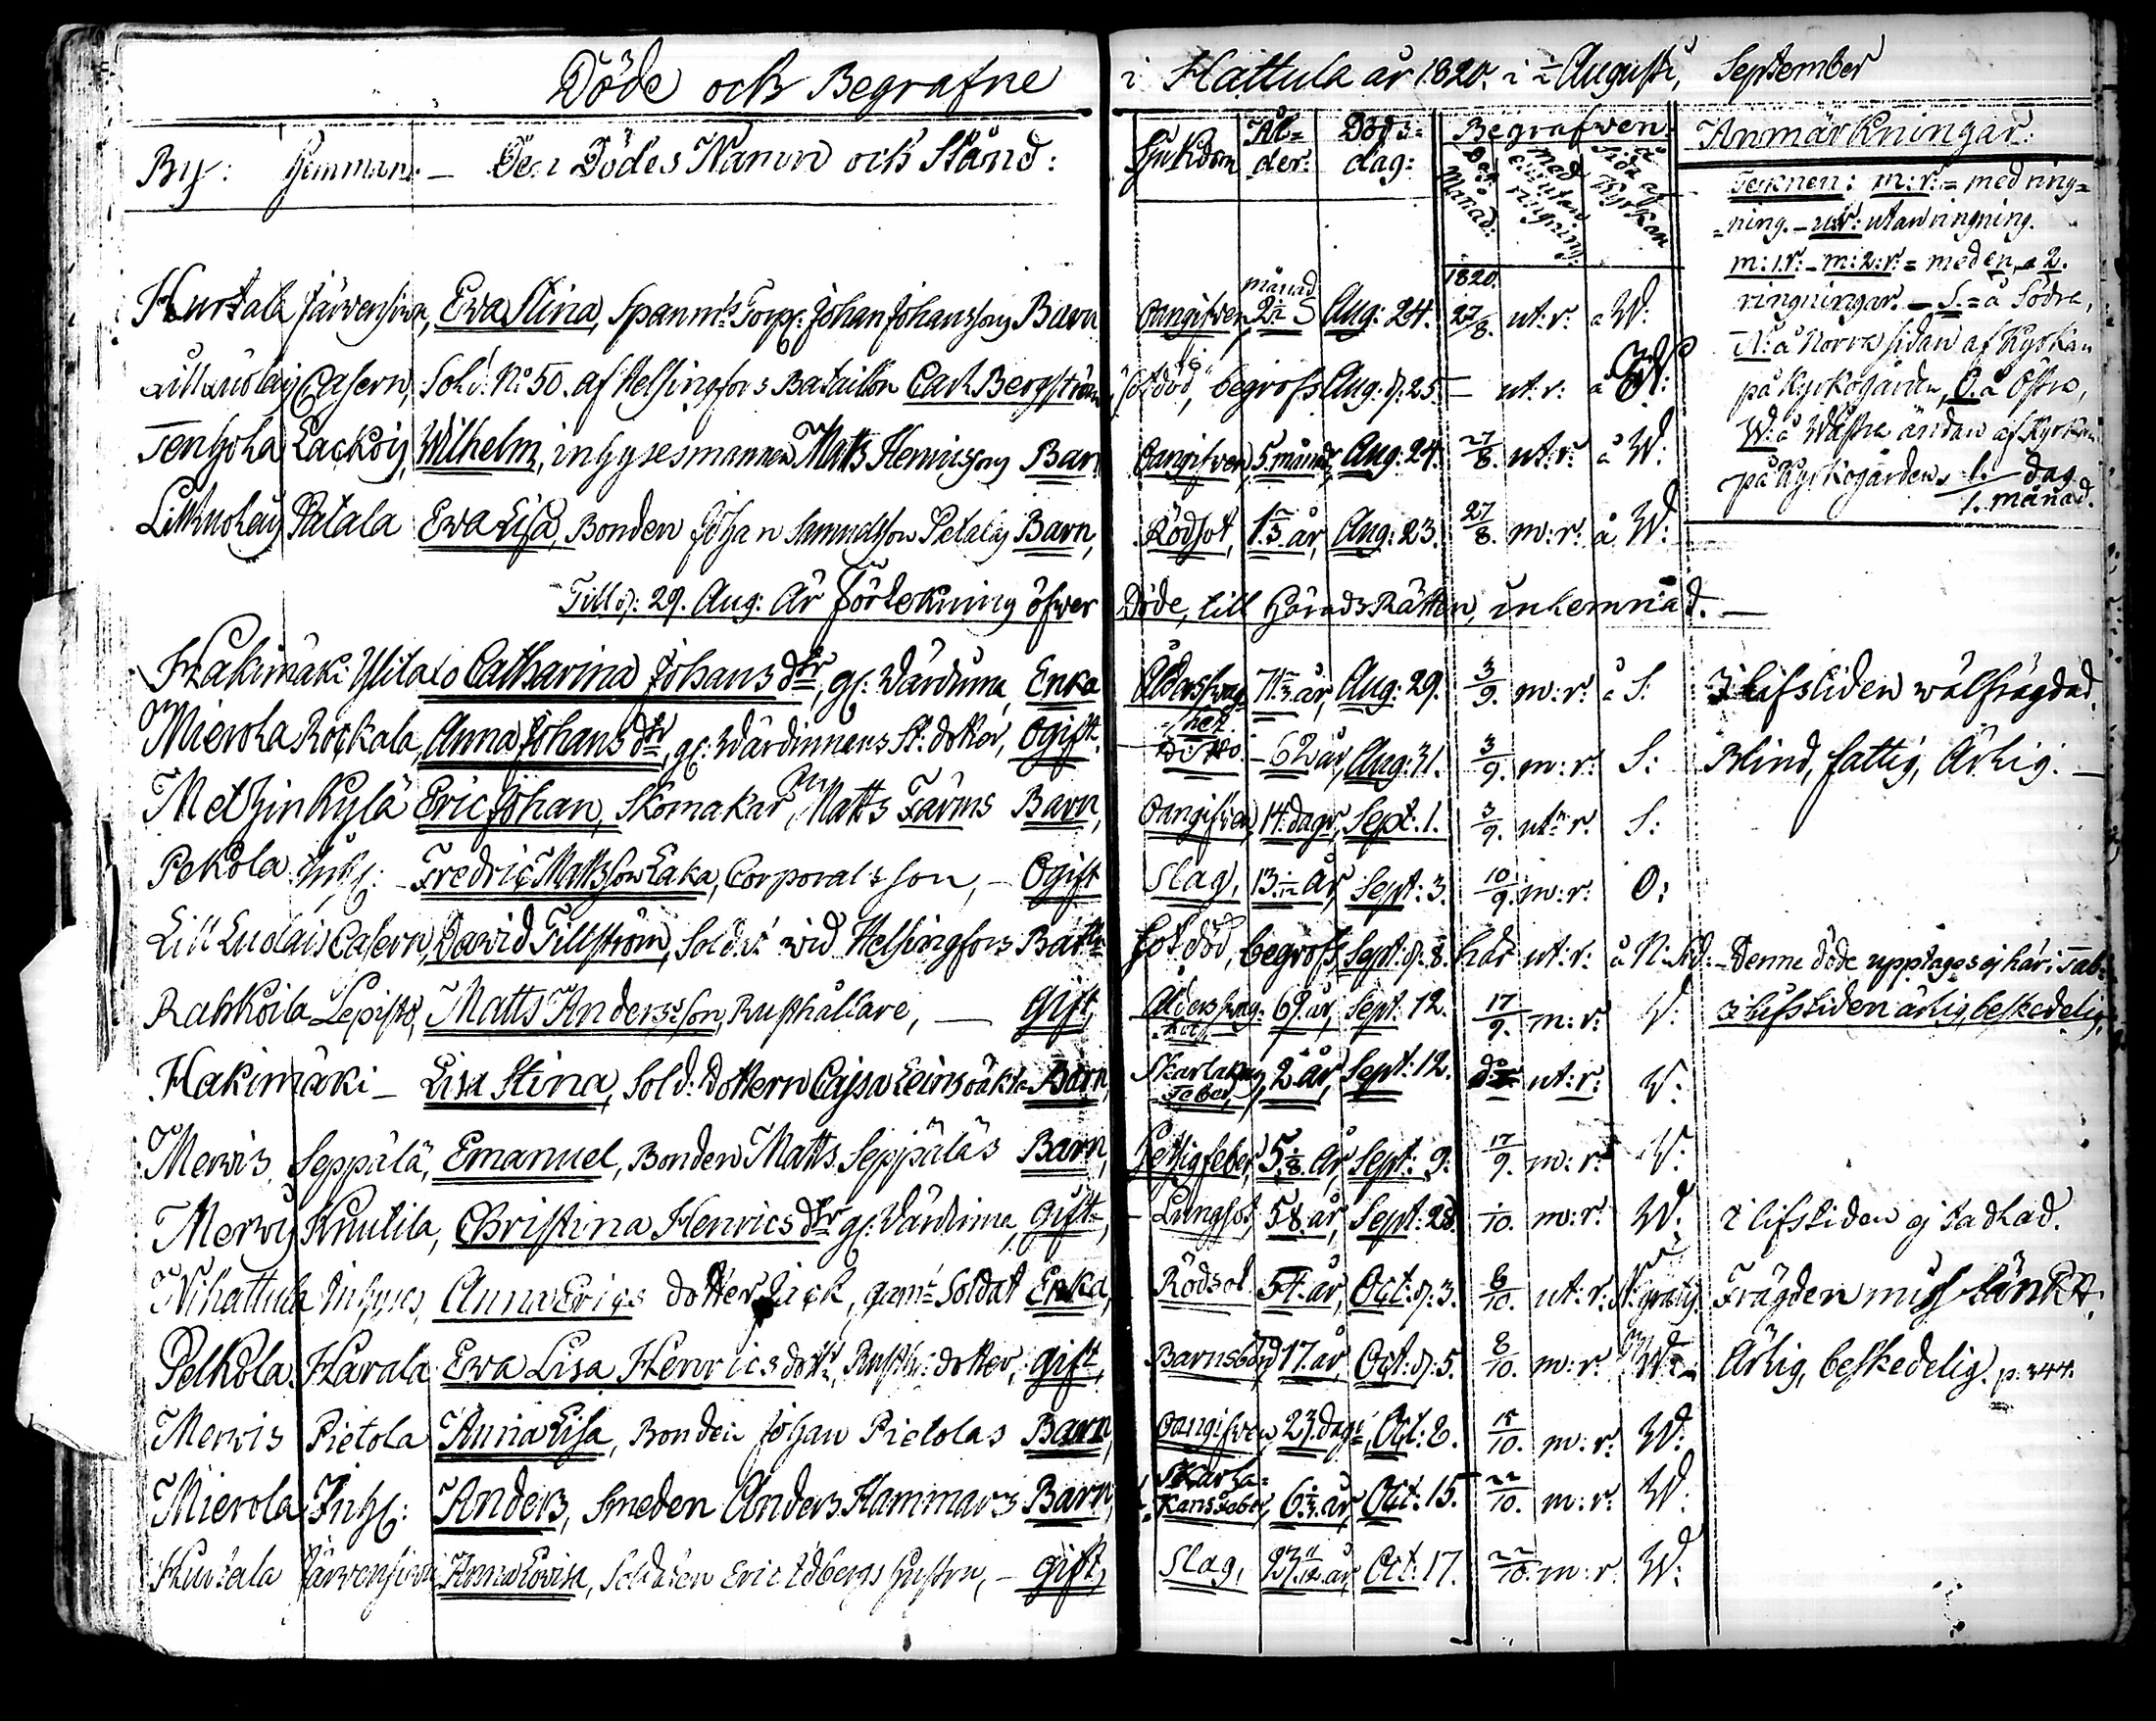 Döde och Begrafne i Hattula år 1820. i ½ Augusti, September
By: Hemman. – De Dödes Namn och Stånd: Sjukdom Ål=der: Döds=dag: Begrafven: Anmärkningar:
Dag Månad: med eller utan ringning: å Sida af Kyrkan
Tecknen: m:r: = med ring=
=ning. – ut:r: utan ringning.
m:1.r: – m:2:r: = med en, a 2.
ringningar. – S. = å Södra,
N: å Norra sidan af Kyrkan
på Kyrkogården, O. å Östra,
W: å Wästra ändan af Kyrkan
på Kyrkogården. 1. dag
1. månad.
1820.
Hurtala Järvensivu, Ewa Stina, Spanm: Torp: Johan Johanssons Barn Oangifven, månad 2½ Aug: 24. 27/8. ut:r: å W:
Lill Luolais Casern, Sold: No 50. af Helsingfors Bataillon Carl Bergström, Sotdöd, begrofs Aug: d: 25. – ut:r: å
Tenhola Lackois, Wilhelm, inhysesmannen Matts Henrissons Barn Oangifven, 5 månad, Aug: 24. 27/8. ut:r: å W:
Lill Luolais Patala Ewa Lisa, Bonden Johan Samuelsson Petalas Barn, Rödsot, 1 2/3 år, Aug: 23. 27/8. m:r: å W:
Till d: 29. Aug: är förtekning öfwer Döde, till Härads Rätten, inlemnad. –
Hakimäki Ylitalo Catharina Johans dtr, gl: Värdinna, Enka Ålderssvaghet 71 år, Aug: 29. 3/9. m:r: å S: I lifstiden wälfrägdad.
Mierola Rockala, Anna Johans dtr, gl: Wärdinnans St: dotter, Ogift. Ditto. – 62 år, Aug: 31. 3/9. m:r: S: Blind, fattig, Ärlig. –
Metzinkylä Eric Johan, Skomakar Matts Färms Barn, Oangifven, 14. dagr, Sept: 1. 3/9. ut:r: S:
Pekola Inhs: – Fredric Mattsson Laka, Corporals son, – Ogift Slag, 13 år, Sept: 3. 10/9. m:r: O:
Lill Luolais Casern, David Tillström, Sold: wid Helsingfors Batln Sotdöd, begrofs, Sept: d: 8. här ut:r: å N: Sid: – Denne döde upptages ej här i Tab:
Rahkoila Lepistö, Matts Andersson, Rusthållare, – Gift, Ålderssvaghet. 69. år, Sept: 12. 17/9. m:r: W: I lifstiden ärlig, beskedelig,
Hakimäki – Lisa Stina, Sold: Dottern Cajsa Leins oäkta Barn, Skarlakans Feber, 2. år, Sept: 12. do ut:r: W:
Merwis Seppälä, Emanuel, Bonden Matts Seppäläs Barn, Hettigfeber, 5 år, Sept: 9. 17/9. m:r: W:
Merwis Knutila, Christina Henrics dtr gl: Värdinna, Gift, Lungsot, 58 år, Sept: 28. 1/10. m:r: W: I lifstiden ej tadlad.
Nihattula Inhyses, Anna Erics dotter, gaml Soldat Enka, Rödsot 54. år, Oct: d: 3. 8/10. ut:r: N: gratis. Frägden
Pelkola Harala Ewa Lisa Henrics dottr, Rusth: dotter, gift, Barnsbörd 17. år, Oct: d: 5. 8/10. m:r: W: Ärlig, beskedelig. p: 244.
Merwis Pietola Anna Lisa, Bonden Johan Pietolas Barn, Oangifven, 23. dagr, Oct: 8. 15/10. m:r: W:
Mierola Inhs: Anders, Smeden Anders Hammars Barn, Skarlakansfeber, 6 år, Oct: 15. 22/10. m:r: W:
Hurtala Järvensivu Anna Lovisa, Soldaten Eric Edbergs Hustru, – gift, Slag, 27 år, Oct: 17. 22/10. m:r: W: